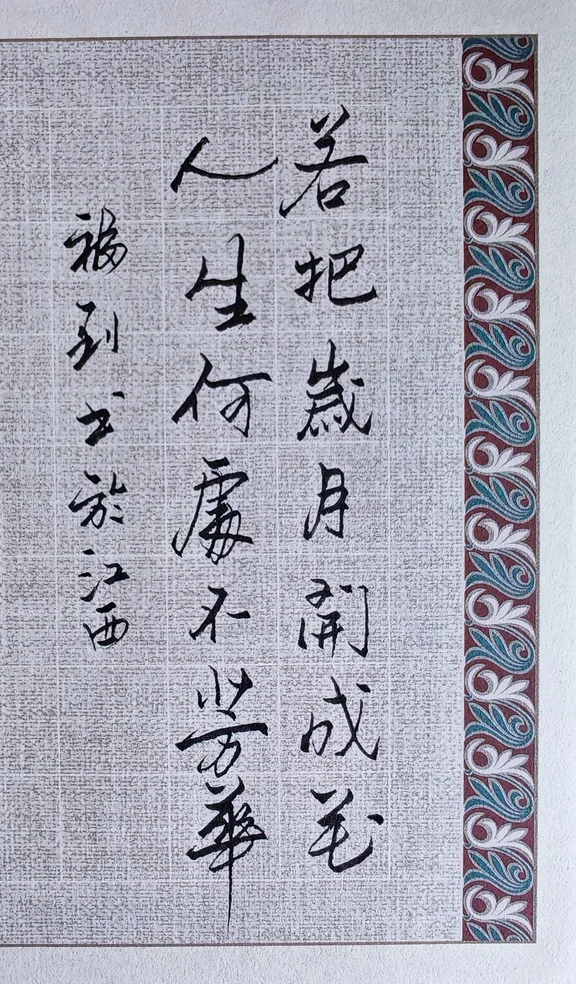 若把歲月開成花
人生何處不芳華
福到书於江西